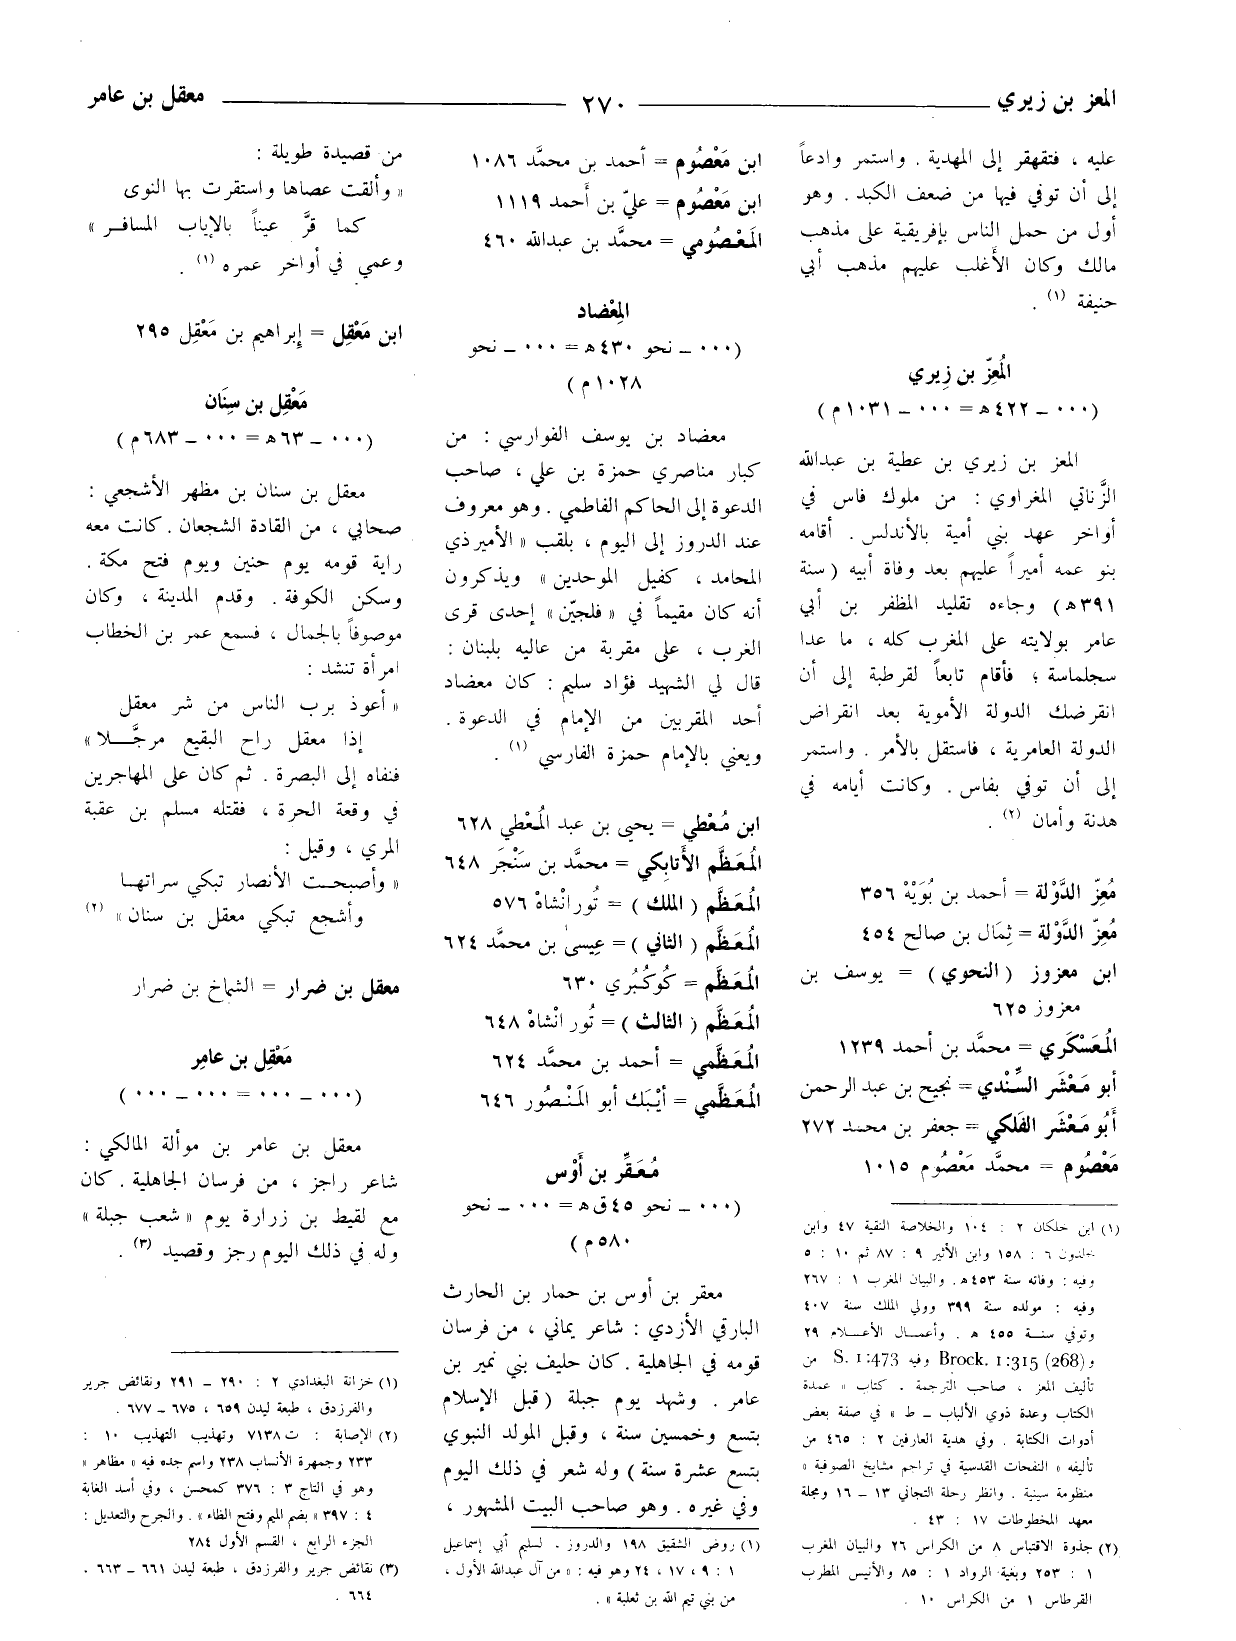 المعز بن زيري
٢٧٠
معقل بن عامر
عليه ، فتقهقر إلى المهدية . واستمر وادعاً
إلى أن توفي فيها من ضعف الكبد . وهو
أول من حمل الناس بإفريقية على مذهب
مالك وكان الأغلب عليهم مذهب أبي
حنيفة (١) .
المُعِزّ بن زِيري
(٠٠٠ – ٤٢٢ هـ = ٠٠٠ – ١٠٣١ م)
المعز بن زيري بن عطية بن عبدالله
الزَّناتي المغراوي : من ملوك فاس في
أواخر عهد بني أمية بالأندلس . أقامه
بنو عمه أميراً عليهم بعد وفاة أبيه ( سنة
٣٩١ هـ) وجاءه تقليد المظفر بن أبي
عامر بولايته على المغرب كله ، ما عدا
سجلماسة ؛ فأقام تابعاً لقرطبة إلى أن
انقرضك الدولة الأموية بعد انقراض
الدولة العامرية ، فاستقل بالأمر . واستمر
إلى أن توفي بفاس . وكانت أيامه في
هدنة وأمان (٢) .
مُعِزّ الدَّوْلة = أحمد بن بُوَيْهْ ٣٥٦
مُعِزّ الدَّوْلة = ثِمَال بن صالح ٤٥٤
ابن معزوز ( النحوي ) = يوسف بن
معزوز ٦٢٥
المُعَسْكَري = محمَّد بن أحمد ١٢٣٩
أبو مَعْشَر السِّنْدي = نجيح بن عبد الرحمن
أَبُو مَعْشَر الفَلكي = جعفر بن محمد ٢٧٢
مَعْصُوم = محمَّد مَعْصُوم ١٠١٥
(١) ابن خلكان ٢ : ١٠٤ والخلاصة النقية ٤٧ وابن
خلدون ٦ : ١٥٨ وابن الأثير ٩ : ٨٧ ثم ١٠ : ٥
وفيه : وفاته سنة ٤٥٣ هـ. والبيان المغرب ١ : ٢٦٧
وفيه : مولده سنة ٣٩٩ وولي الملك سنة ٤٠٧
وتوفي سنة ٤٥٥ هـ . وأعمال الأعلام ٢٩
و Brock. 1:315 (268) وفيه S. 1:473 من
تأليف المعز ، صاحب الترجمة . كتاب « عمدة
الكتاب وعدة ذوي الألباب – ط » في صفة بعض
أدوات الكتابة . وفي هدية العارفين ٢ : ٤٦٥ من
تأليفه « النفحات القدسية في تراجم مشايخ الصوفية »
منظومة سينية . وانظر رحلة التجاني ١٣ – ١٦ ومجلة
معهد المخطوطات ١٧ : ٤٣ .
(٢) جذوة الاقتباس ٨ من الكراس ٢٦ والبيان المغرب
١ : ٢٥٣ وبغية الرواد ١ : ٨٥ والأنيس المطرب
القرطاس ١ من الكراس ١٠ .
ابن مَعْصُوم = أحمد بن محمَّد ١٠٨٦
ابن مَعْصُوم = عليّ بن أَحمد ١١١٩
المَعْصُومي = محمَّد بن عبدالله ٤٦٠
المِعْضاد
(٠٠٠ – نحو ٤٣٠ هـ = ٠٠٠ – نحو
١٠٢٨ م)
معضاد بن يوسف الفوارسي : من
كبار مناصري حمزة بن علي ، صاحب
الدعوة إلى الحاكم الفاطمي . وهو معروف
عند الدروز إلى اليوم ، بلقب « الأمير ذي
المحامد ، كفيل الموحدين » ويذكرون
أنه كان مقيماً في « فلجيّن » إحدى قرى
الغرب ، على مقربة من عاليه بلبنان :
قال لي الشهيد فؤاد سليم : كان معضاد
أحد المقربين من الإمام في الدعوة .
ويعني بالإمام حمزة الفارسي (١) .
ابن مُعْطي = يحيى بن عبد المُعْطي ٦٢٨
المُعَظَّم الأَتابكي = محمَّد بن سَنْجَر ٦٤٨
المُعَظَّم ( الملك ) = تُورانْشاهْ ٥٧٦
المُعَظَّم ( الثاني ) = عيسىٰ بن محمَّد ٦٢٤
المُعَظَّم = كُوكُبُري ٦٣٠
المُعَظَّم ( الثالث ) = تُورانْشاهْ ٦٤٨
المُعَظَّمي = أحمد بن محمَّد ٦٢٤
المُعَظَّمي = أَيْبَك أبو المَنْصُور ٦٤٦
مُعَقِّر بن أَوْس
(٠٠٠ – نحو ٤٥ ق هـ = ٠٠٠ – نحو
٥٨٠ م)
معقر بن أوس بن حمار بن الحارث
البارقي الأزدي : شاعر يماني ، من فرسان
قومه في الجاهلية . كان حليف بني نمير بن
عامر . وشهد يوم جبلة ( قبل الإسلام
بتسع وخمسين سنة ، وقبل المولد النبوي
بتسع عشرة سنة ) وله شعر في ذلك اليوم
وفي غيره . وهو صاحب البيت المشهور ،
(١) روض الشقيق ١٩٨ والدروز . لسليم أبي إسماعيل
١ : ٩ ، ١٧ ، ٢٤ وهو فيه : « من آل عبدالله الأول ،
من بني تيم الله بن ثعلبة » .
من قصيدة طويلة :
« وألقت عصاها واستقرت بها النوى
كما قرَّ عيناً بالإياب المسافر »
وعمي في أواخر عمره (١) .
ابن مَعْقِل = إبراهيم بن مَعْقِل ٢٩٥
مَعْقِل بن سِنَان
(٠٠٠ – ٦٣ هـ = ٠٠٠ – ٦٨٣ م)
معقل بن سنان بن مظهر الأشجعي :
صحابي ، من القادة الشجعان . كانت معه
راية قومه يوم حنين ويوم فتح مكة .
وسكن الكوفة . وقدم المدينة ، وكان
موصوفاً بالجمال ، فسمع عمر بن الخطاب
امرأة تنشد :
« أعوذ برب الناس من شر معقل
إذا معقل راح البقيع مرجَّلا »
فنفاه إلى البصرة . ثم كان على المهاجرين
في وقعة الحرة ، فقتله مسلم بن عقبة
المري ، وقيل :
« وأصبحت الأنصار تبكي سراتها
وأشجع تبكي معقل بن سنان » (٢)
معقل بن ضرار = الشماخ بن ضرار
مَعْقِل بن عامِر
(٠٠٠ – ٠٠٠ = ٠٠٠ – ٠٠٠)
معقل بن عامر بن موألة المالكي :
شاعر راجز ، من فرسان الجاهلية . كان
مع لقيط بن زرارة يوم « شعب جبلة »
وله في ذلك اليوم رجز وقصيد (٣) .
(١) خزانة البغدادي ٢ : ٢٩٠ – ٢٩١ ونقائض جرير
والفرزدق ، طبعة ليدن ٦٥٩ ، ٦٧٥ – ٦٧٧ .
(٢) الإصابة : ت ٧١٣٨ وتهذيب التهذيب ١٠ :
٢٣٣ وجمهرة الأنساب ٢٣٨ واسم جده فيه « مظاهر »
وهو في التاج ٣ : ٣٧٦ كمحسن ، وفي أسد الغابة
٤ : ٣٩٧ « بضم الميم وفتح الظاء » . والجرح والتعديل :
الجزء الرابع ، القسم الأول ٢٨٤
(٣) نقائض جرير والفرزدق ، طبعة ليدن ٦٦١ – ٦٦٣ .
٦٦٤ .